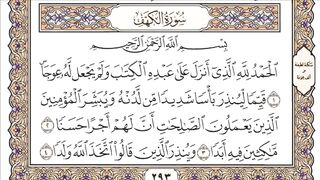 سُورَةُ الْكَهْفِ
بِسْمِ اللَّهِ الرَّحْمَٰنِ الرَّحِيمِ
الْحَمْدُ لِلَّهِ الَّذِي أَنزَلَ عَلَىٰ عَبْدِهِ الْكِتَٰبَ وَلَمْ يَجْعَل لَّهُ عِوَجًا
١ قَيِّمًا لِّيُنذِرَ بَأْسًا شَدِيدًا مِّن لَّدُنْهُ وَيُبَشِّرَ الْمُؤْمِنِينَ
الَّذِينَ يَعْمَلُونَ الصَّٰلِحَٰتِ أَنَّ لَهُمْ أَجْرًا حَسَنًا ٢
مَّٰكِثِينَ فِيهِ أَبَدًا ٣ وَيُنذِرَ الَّذِينَ قَالُوا اتَّخَذَ اللَّهُ وَلَدًا ٤
٢٩٣